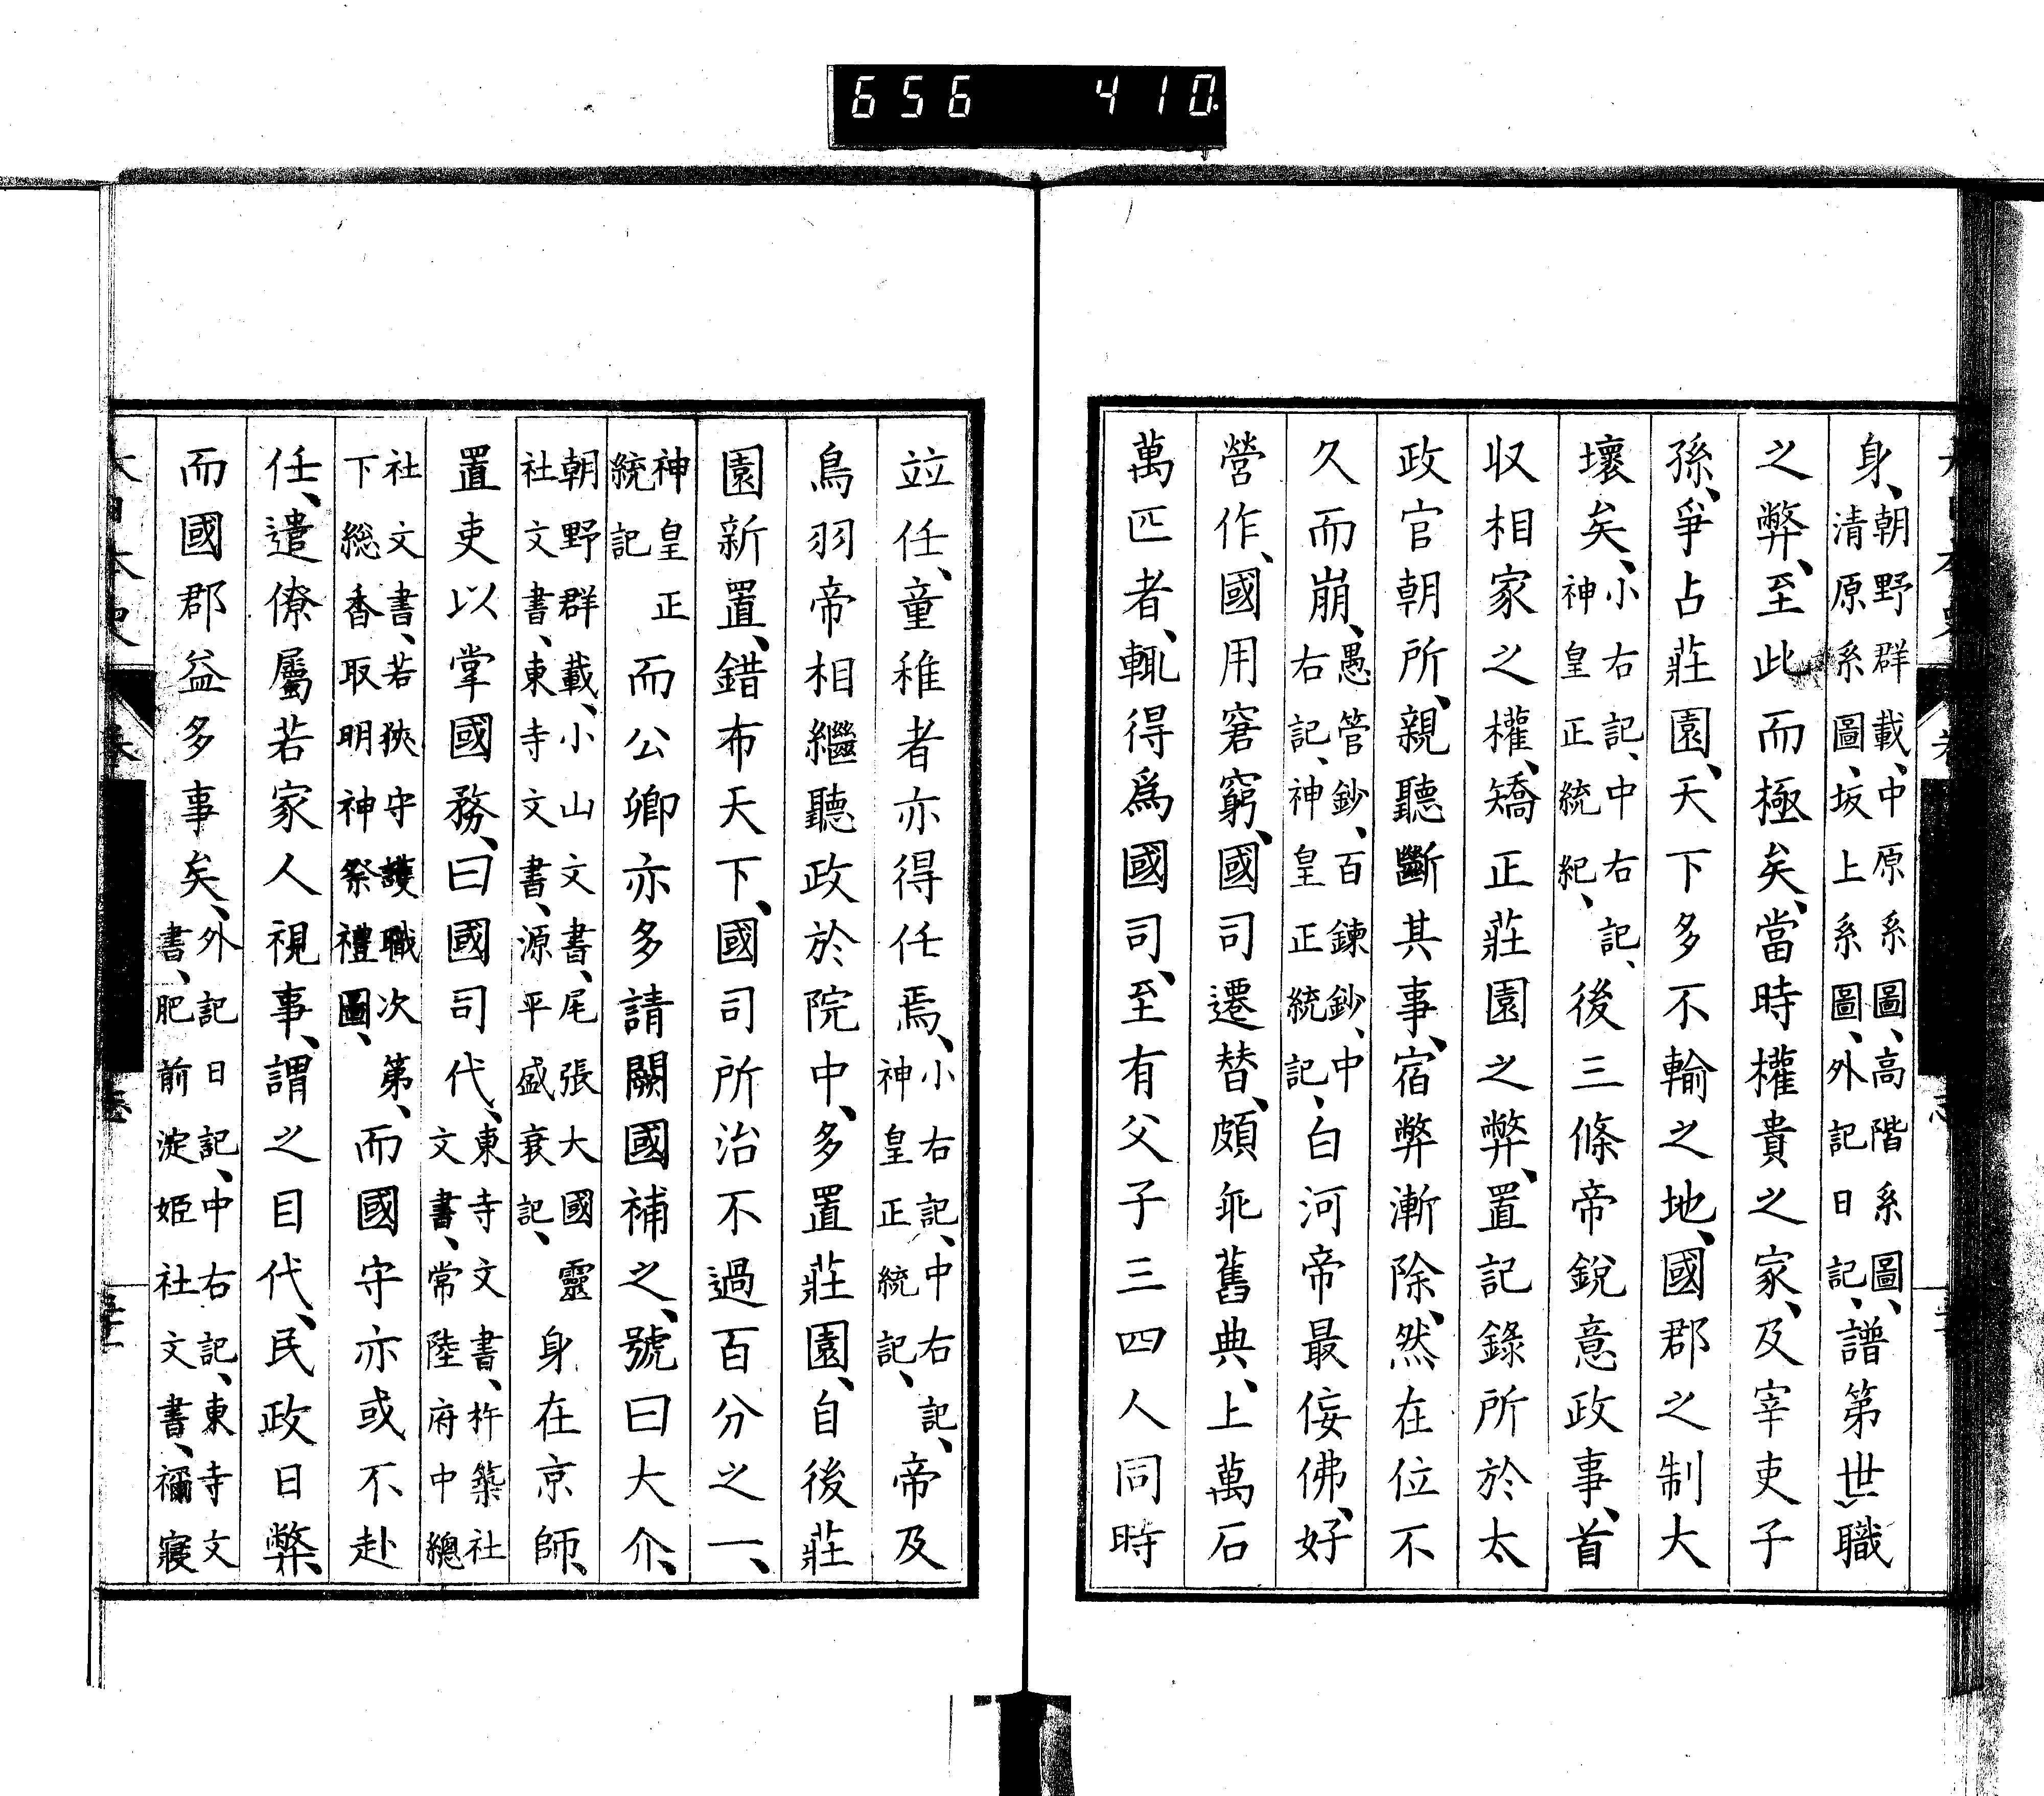 656 410
身、朝野群載、中原系圖、高階系圖、清原系圖、坂上系圖、外記日記、譜第世職
之弊、至此而極矣、當時權貴之家、及宰吏子
孫、爭占莊園、天下多不輸之地、國郡之制大
壞矣、小右記、中右記、神皇正統紀、後三條帝銳意政事、首
収相家之權、矯正莊園之弊、置記錄所於太
政官朝所、親聽斷其事、宿弊漸除、然在位不
久而崩、愚管鈔、百鍊鈔、中右記、神皇正統記、白河帝最侫佛、好
營作、國用窘窮、國司遷替、頗乖舊典、上萬石
萬匹者、輒得爲國司、至有父子三四人同時
竝任、童稚者亦得任焉、小右記、中右記、神皇正統記、帝及
鳥羽帝相繼聽政於院中、多置莊園、自後莊
園新置、錯布天下、國司所治不過百分之一、
神皇正統記而公卿亦多請關國補之、號曰大介、
朝野群載、小山文書、尾張大國靈社文書、東寺文書、源平盛衰記、身在京師、
置吏以掌國務、曰國司代、東寺文書、杵築社文書、常陸府中總
社文書、若狹守護職次第、下総香取明神祭禮圖、而國守亦或不赴
任、遣僚屬若家人視事、謂之目代、民政日弊、
而國郡益多事矣、外記日記、中右記、東寺文書、肥前淀姫社文書、禰寢